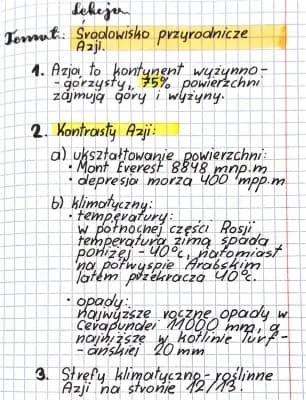 Lekcja
Temat: Środowisko przyrodnicze
Azji.
1. Azja to kontynent wyżynno-
-górzysty, 75% powierzchni
zajmują góry i wyżyny.
2. Kontrasty Azji:
a) ukształtowanie powierzchni:
• Mont Everest 8848 mnp.m
• depresja morza 400 mpp.m
b) klimatyczny:
• temperatury:
w północnej części Rosji
temperatura zimą spada
poniżej -40°c, natomiast
na półwyspie Arabskim
latem przekracza 40°c.
• opady:
najwyższe roczne opady w
Cerapundei 11000 mm, a
najniższe w kotlinie Turf-
-ańskiej 20mm
3. Strefy klimatyczno-roślinne
Azji na stronie 12/13.